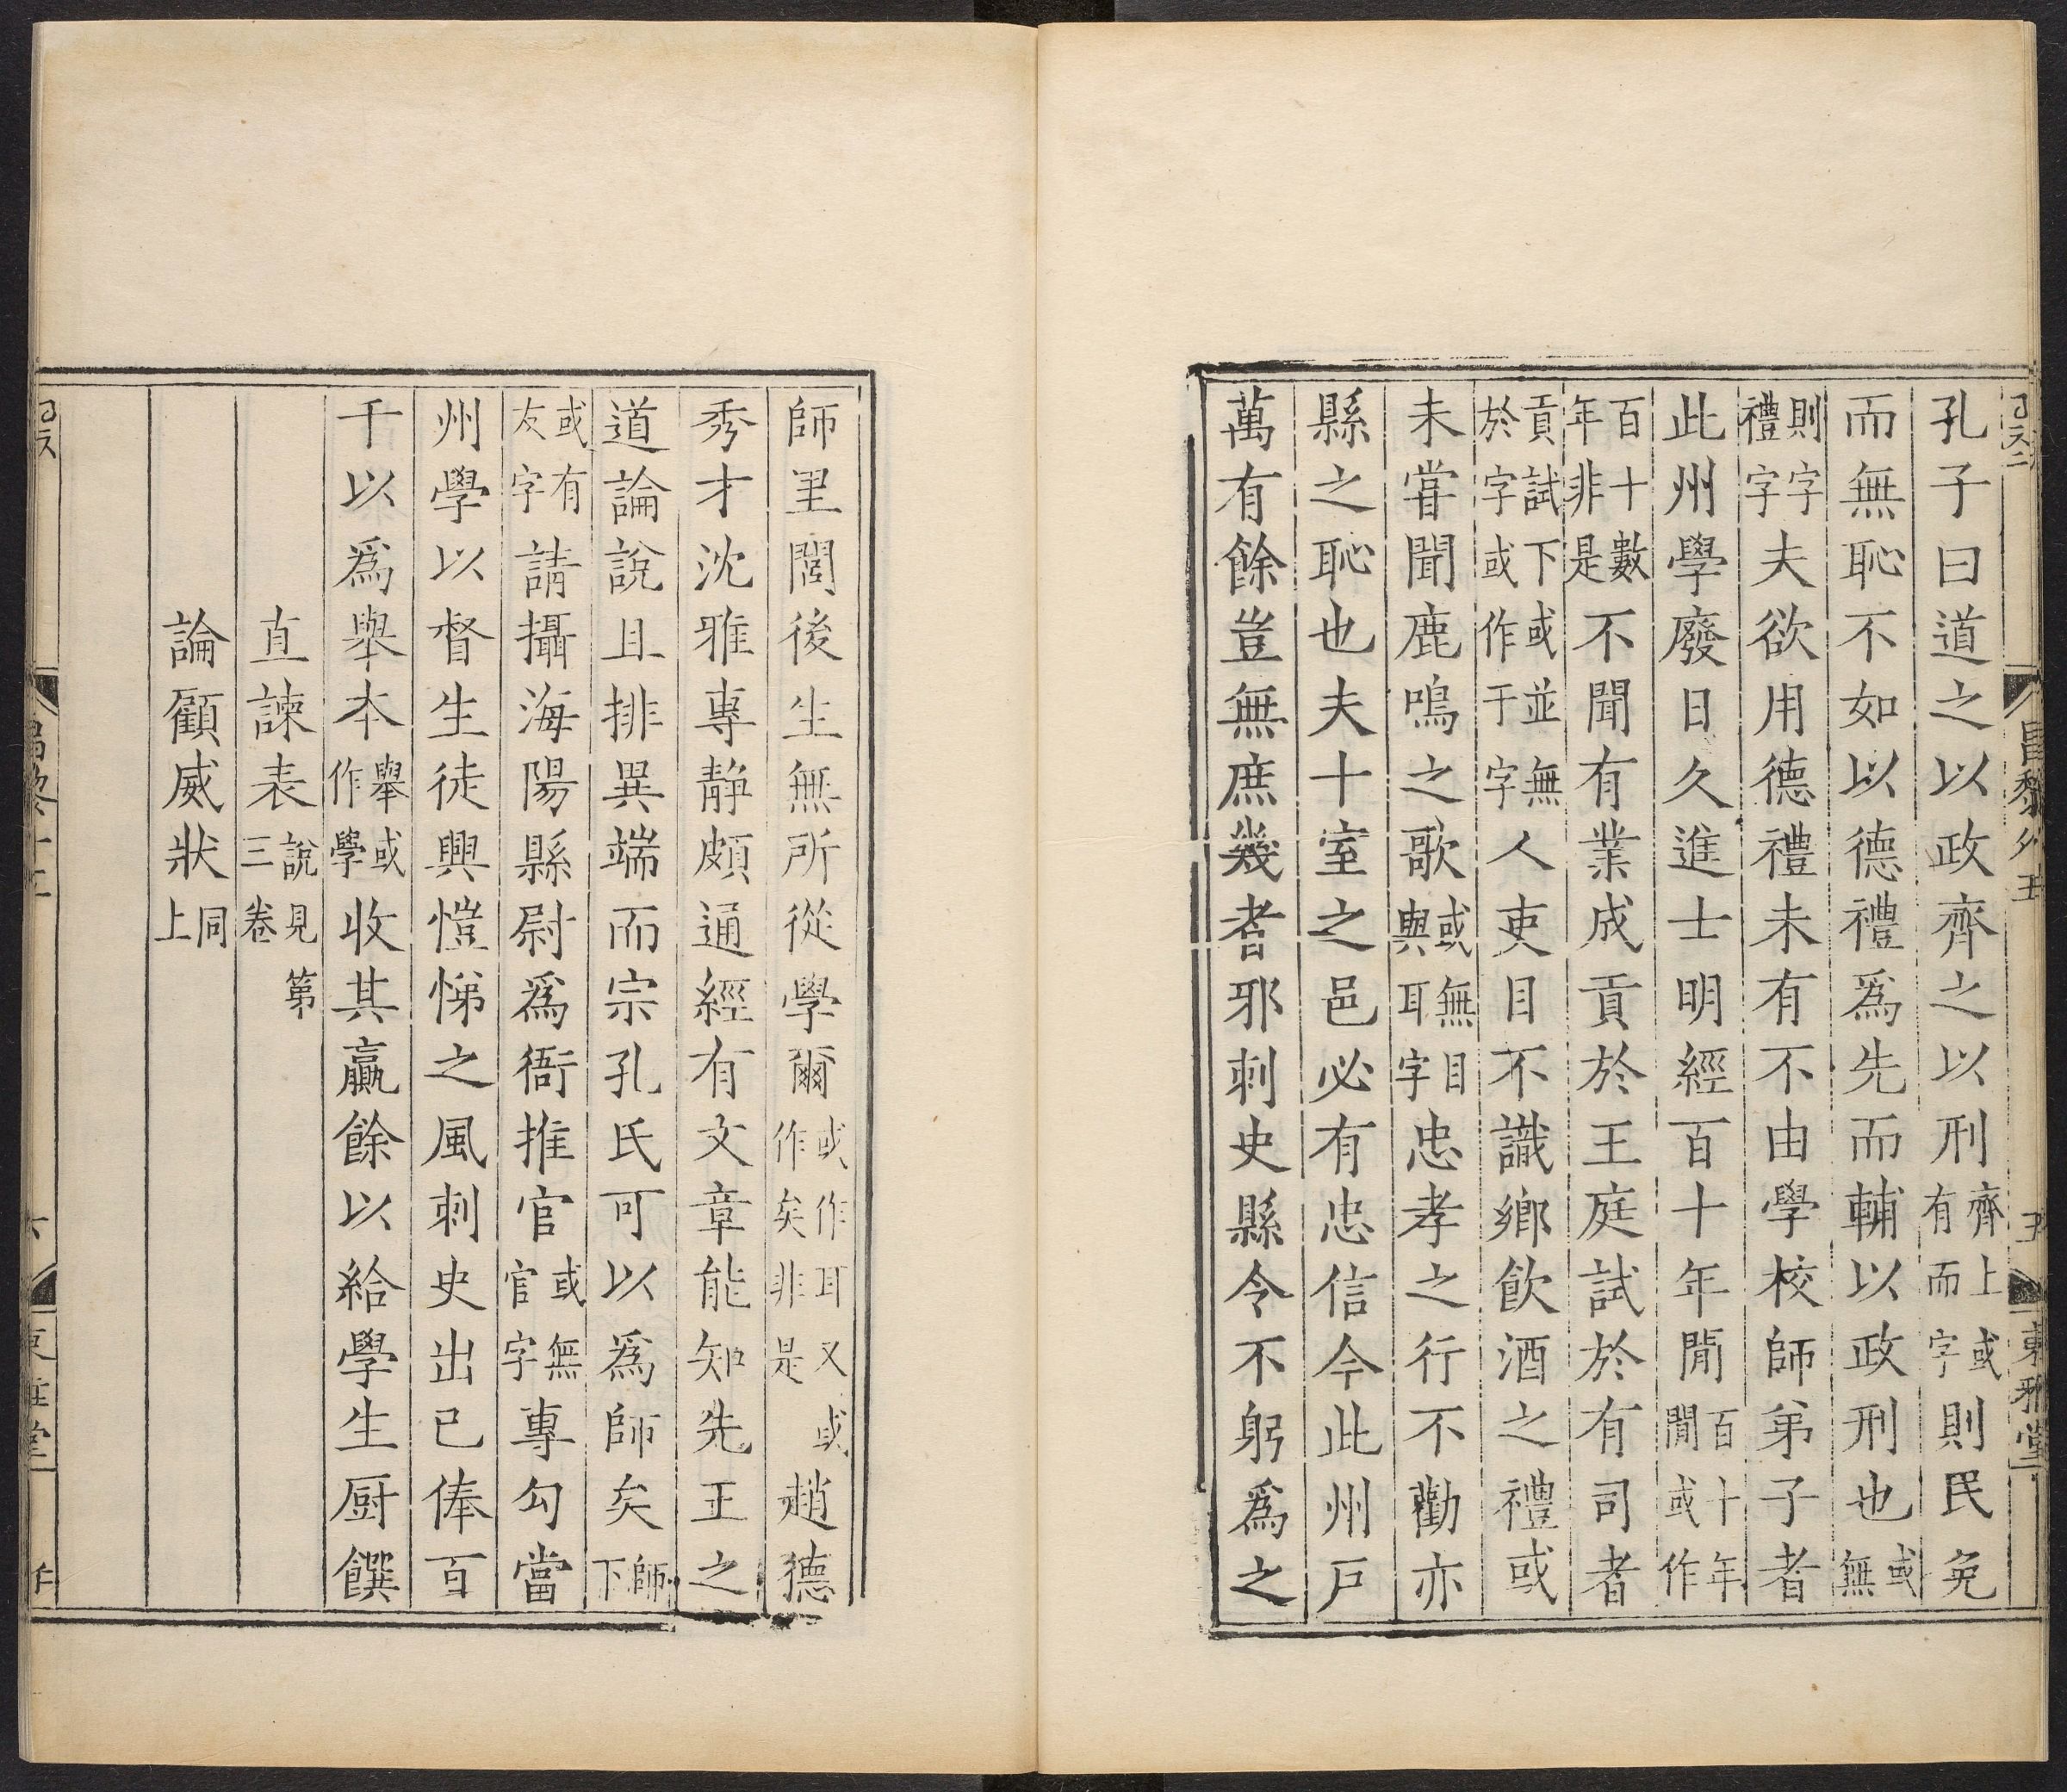 孔子曰道之以政齊之以刑齊上或有而字則民免
而無恥不如以德禮爲先而輔以政刑也或無
則字禮字夫欲用德禮未有不由學校師弟子者
此州學廢日久進士明經百十年閒百十年閒或作
百十數年非是不聞有業成貢於王庭試於有司者
貢試下或並無於字或作于字人吏目不識鄉飲酒之禮或
未甞聞鹿鳴之歌或無目與耳字忠孝之行不勸亦
縣之恥也夫十室之邑必有忠信今此州戸
萬有餘豈無庶幾者邪刺史縣令不躬爲之
昌黎外五
五
東雅堂
師里閭後生無所從學爾或作耳又或作矣非是趙德
秀才沈雅專靜頗通經有文章能知先王之
道論說且排異端而宗孔氏可以爲師矣師下
或有友字請攝海陽縣尉爲衙推官或無官字專勾當
州學以督生徒興愷悌之風刺史出已俸百
千以爲舉本舉或作學收其贏餘以給學生厨饌
直諫表說見第三卷
論顧威狀同上